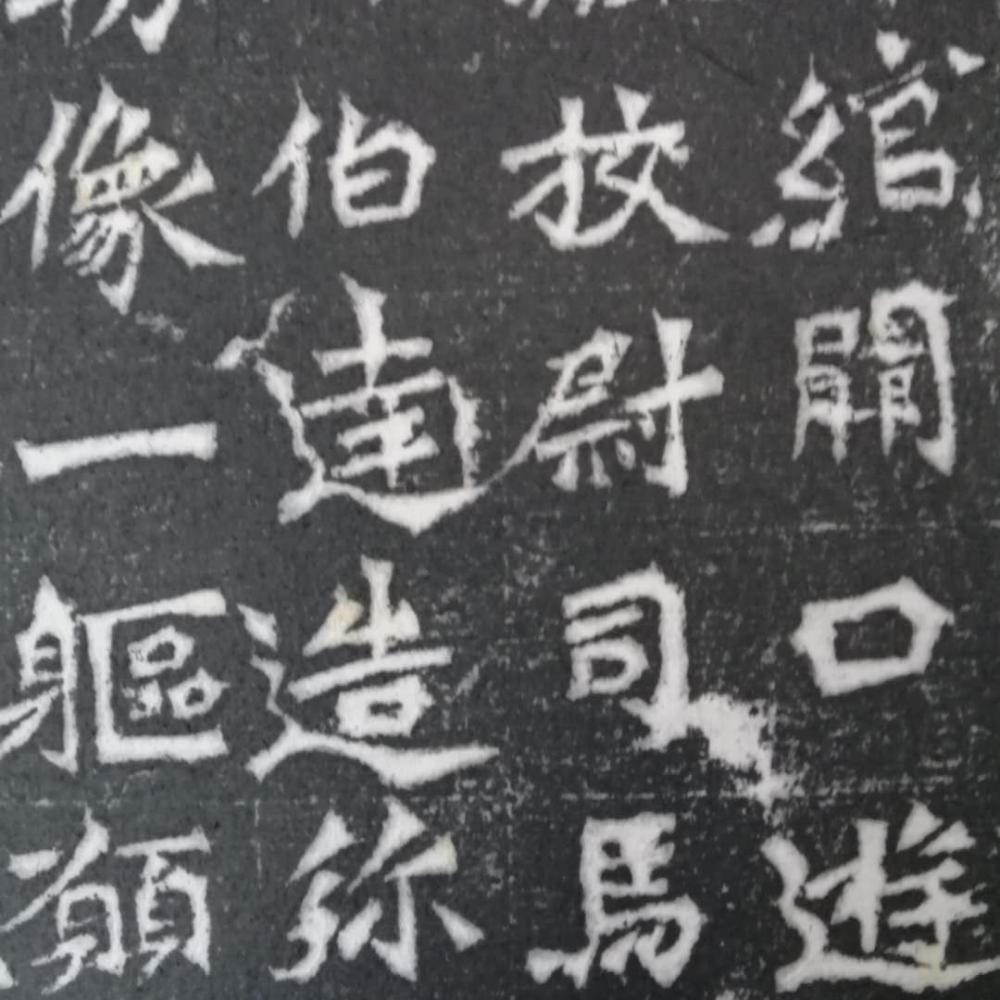 綰闕口遊
校尉司馬
伯達造弥
像一軀願